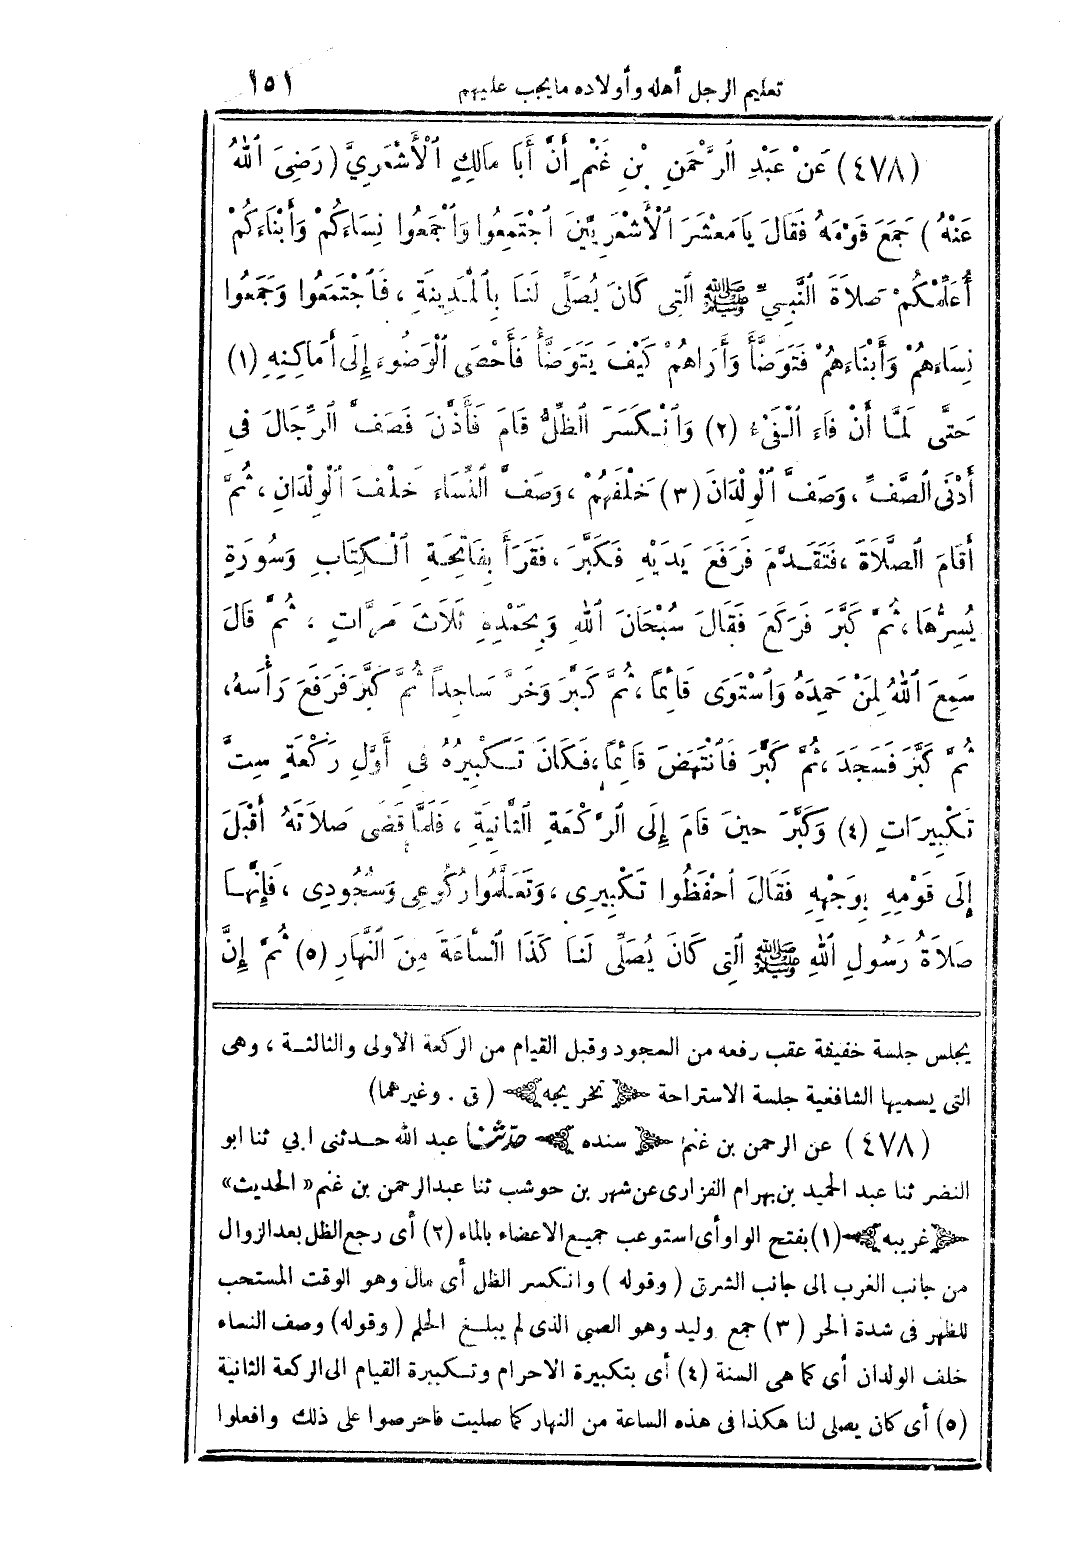 تعليم الرجل أهله وأولاده ما يجب عليهم ١٥١
(٤٧٨) عَنْ عَبْدِ ٱلرَّحْمَنِ بْنِ غَنْمٍ أَنَّ أَبَا مَالِكٍ ٱلْأَشْعَرِيَّ (رَضِيَ ٱللهُ
عَنْهُ) جَمَعَ قَوْمَهُ فَقَالَ يَامَعْشَرَ ٱلْأَشْعَرِيِّينَ ٱجْتَمِعُوا وَٱجْمَعُوا نِسَاءَكُمْ وَأَبْنَاءَكُمْ
أُعَلِّمْكُمْ صَلَاةَ ٱلنَّبِيِّ ﷺ ٱلَّتِى كَانَ يُصَلِّى لَنَا بِٱلْمَدِينَةِ ، فَٱجْتَمَعُوا وَجَمَعُوا
نِسَاءَهُمْ وَأَبْنَاءَهُمْ فَتَوَضَّأَ وَأَرَاهُمْ كَيْفَ يَتَوَضَّأُ فَأَحْصَى ٱلْوَضُوءَ إِلَى أَمَاكِنِهِ (١)
حَتَّى لَمَّا أَنْ فَاءَ ٱلْفَىْءُ (٢) وَٱنْكَسَرَ ٱلظِّلُّ قَامَ فَأَذَّنَ فَصَفَّ ٱلرِّجَالَ فِى
أَدْنَى ٱلصَّفِّ ، وَصَفَّ ٱلْوِلْدَانَ (٣) خَلْفَهُمْ ، وَصَفَّ ٱلنِّسَاءَ خَلْفَ ٱلْوِلْدَانِ ، ثُمَّ
أَقَامَ ٱلصَّلَاةَ ، فَتَقَدَّمَ فَرَفَعَ يَدَيْهِ فَكَبَّرَ ، فَقَرَأَ بِفَاتِحَةِ ٱلْكِتَابِ وَسُورَةٍ
يُسِرُّهَا ، ثُمَّ كَبَّرَ فَرَكَعَ فَقَالَ سُبْحَانَ ٱللهِ وَبِحَمْدِهِ ثَلَاثَ مَرَّاتٍ ، ثُمَّ قَالَ
سَمِعَ ٱللهُ لِمَنْ حَمِدَهُ وَٱسْتَوَى قَائِمًا ، ثُمَّ كَبَّرَ وَخَرَّ سَاجِداً ثُمَّ كَبَّرَ فَرَفَعَ رَأْسَهُ ،
ثُمَّ كَبَّرَ فَسَجَدَ ، ثُمَّ كَبَّرَ فَٱنْتَهَضَ قَائِمًا ، فَكَانَ تَكْبِيرُهُ فِى أَوَّلِ رَكْعَةٍ سِتَّ
تَكْبِيرَاتٍ (٤) وَكَبَّرَ حِينَ قَامَ إِلَى ٱلرَّكْعَةِ ٱلثَّانِيَةِ ، فَلَمَّا قَضَى صَلَاتَهُ أَقْبَلَ
إِلَى قَوْمِهِ بِوَجْهِهِ فَقَالَ ٱحْفَظُوا تَكْبِيرِى ، وَتَعَلَّمُوا رُكُوعِى وَسُجُودِى ، فَإِنَّهَا
صَلَاةُ رَسُولِ ٱللهِ ﷺ ٱلَّتِى كَانَ يُصَلِّى لَنَا كَذَا ٱلسَّاعَةَ مِنَ ٱلنَّهَارِ (٥) ثُمَّ إِنَّ
يجلس جلسة خفيفة عقب رفعه من السجود وقبل القيام من الركعة الاولى والثالثة ، وهى
التى يسميها الشافعية جلسة الاستراحة ﴿ تخريجه ﴾ (ق . وغيرهما)
(٤٧٨) عن الرحمن بن غنم ﴿ سنده ﴾ حدّثنا عبد الله حدثنى ابي ثنا ابو
النضر ثنا عبد الحميد بن بهرام الفزارى عن شهر بن حوشب ثنا عبدالرحمن بن غنم « الحديث »
﴿ غريبه ﴾ (١) بفتح الواو أى استوعب جميع الاعضاء بالماء (٢) أى رجع الظل بعد الزوال
من جانب الغرب الى جانب الشرق (وقوله) وانكسر الظل أى مال وهو الوقت المستحب
للظهر فى شدة الحر (٣) جمع وليد وهو الصبى الذى لم يبلغ الحلم (وقوله) وصف النساء
خلف الولدان أى كما هى السنة (٤) أى بتكبيرة الاحرام وتكبيرة القيام الى الركعة الثانية
(٥) أى كان يصلى لنا هكذا فى هذه الساعة من النهار كما صليت فاحرصوا على ذلك وافعلوا